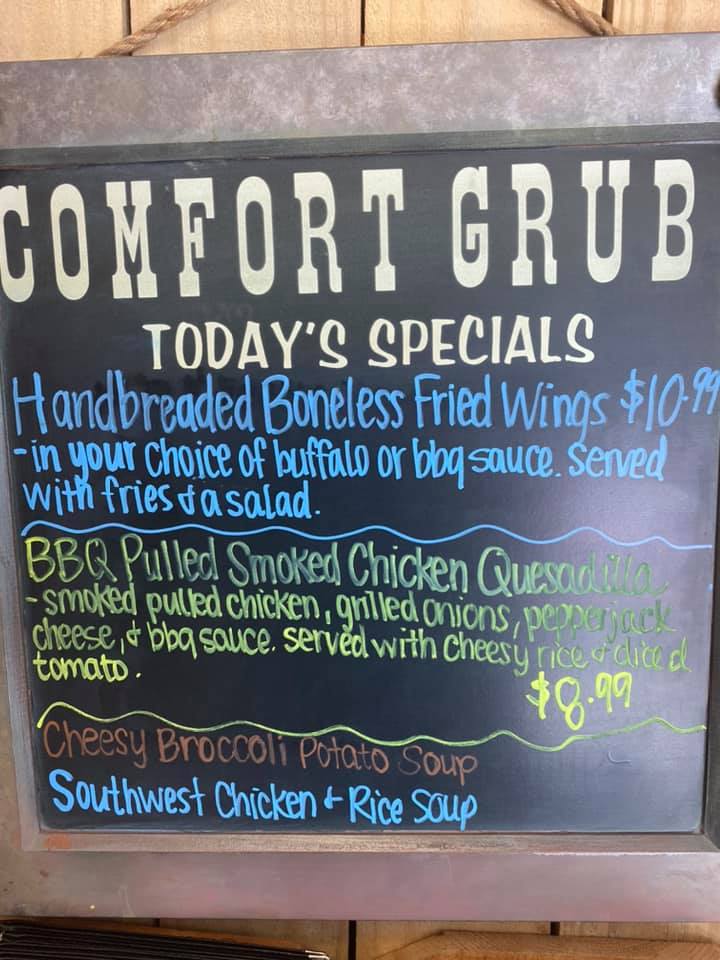 COMFORT GRUB
TODAY'S SPECIALS
Handbreaded Boneless Fried Wings $10.99
-in your choice of buffalo or bbq sauce. Served
with fries & a salad.
BBQ Pulled Smoked Chicken Quesadilla
-smoked pulled chicken, grilled onions, pepperjack
cheese, & bbq sauce. Served with cheesy rice & diced
tomato.
$8.99
Cheesy Broccoli Potato Soup
Southwest Chicken & Rice Soup